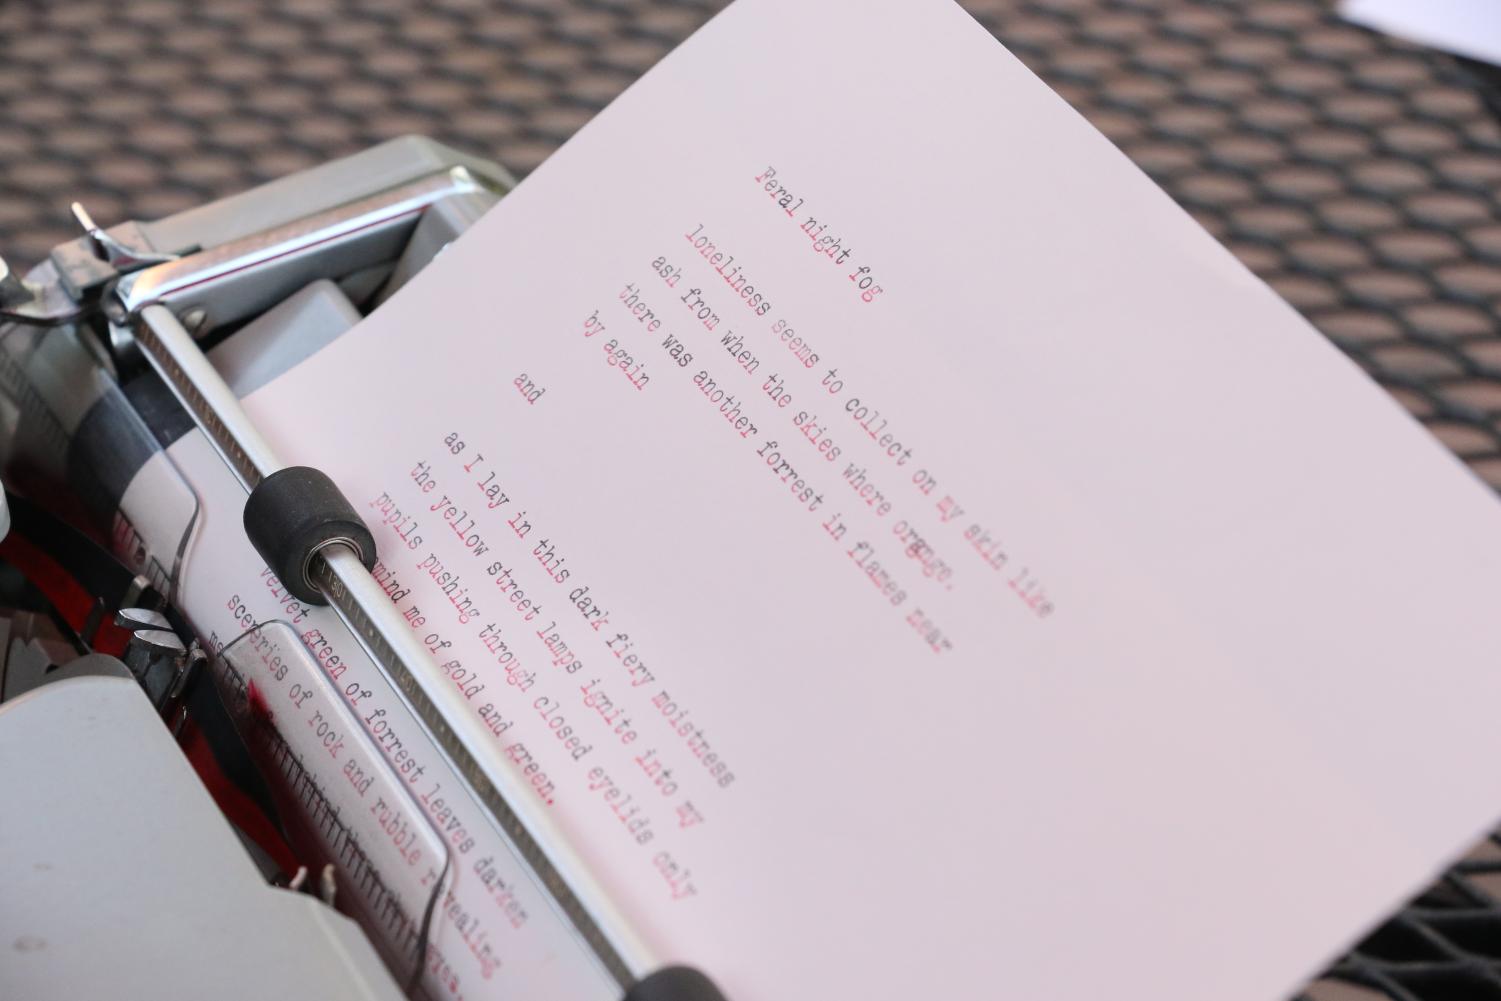 Feral night fog
loneliness seems to collect on my skin like
ash from when the skies where orgnge.
there was another forrest in flames near
by again
and
as I lay in this dark fiery moistness
the yellow street lamps ignite into my
pupils pushing through closed eyelids only
mind me of gold and green.
velvet green of forrest leaves darken
sceneries of rock and rubble revealing